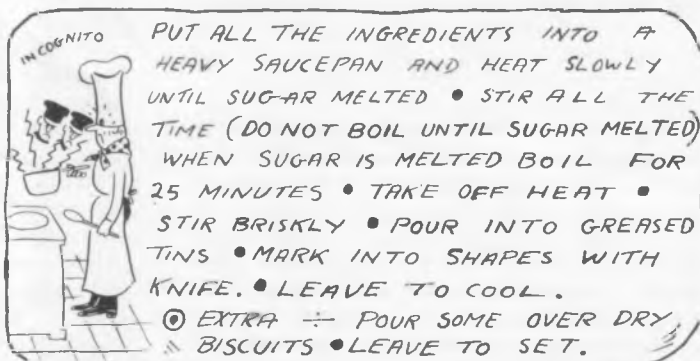 INCOGNITO
PUT ALL THE INGREDIENTS INTO A
HEAVY SAUCEPAN AND HEAT SLOWLY
UNTIL SUGAR MELTED ● STIR ALL THE
TIME (DO NOT BOIL UNTIL SUGAR MELTED)
WHEN SUGAR IS MELTED BOIL FOR
25 MINUTES ● TAKE OFF HEAT ●
STIR BRISKLY ● POUR INTO GREASED
TINS ● MARK INTO SHAPES WITH
KNIFE. ● LEAVE TO COOL.
◉ EXTRA ÷ POUR SOME OVER DRY
BISCUITS ● LEAVE TO SET.